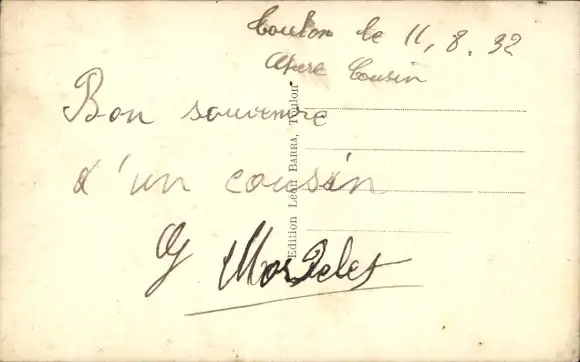 Toulon le 11, 8. 32
Cousin
Bon souvenire
d'un cousin
Edition Léon BARRA, Toulon